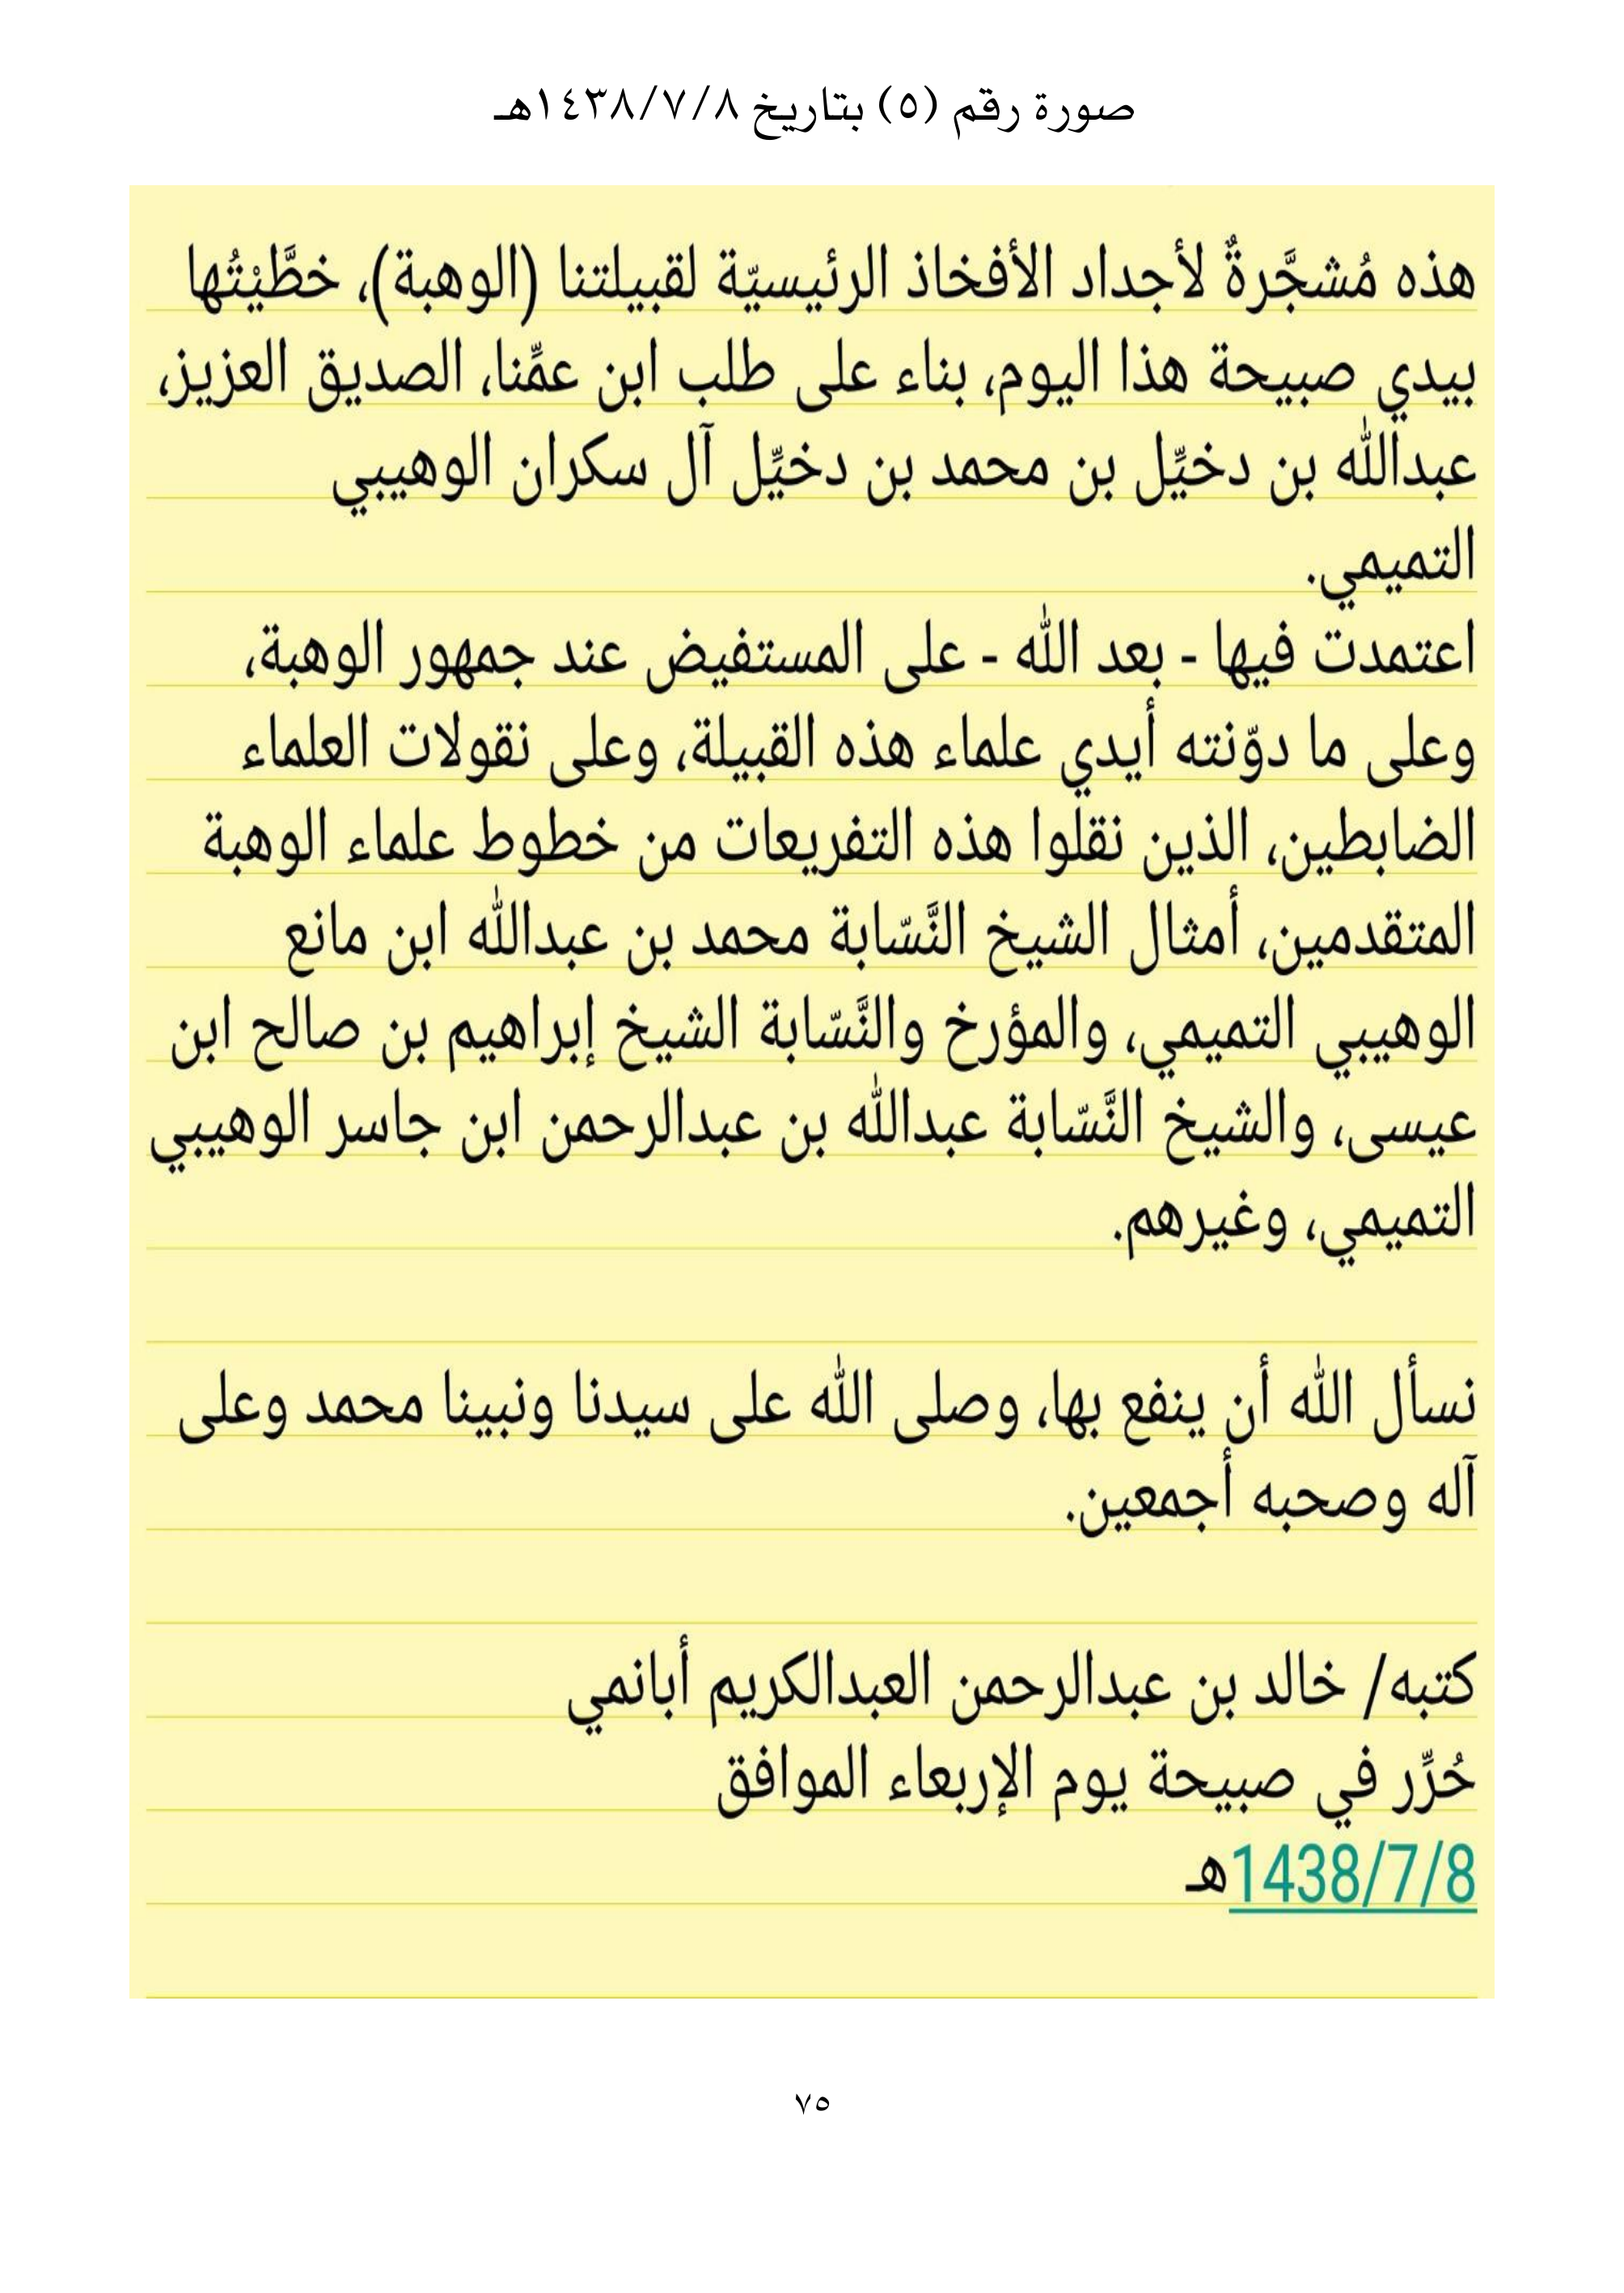 صورة رقم (٥) بتاريخ ١٤٣٨/٧/٨هـ
هذه مُشجَّرةٌ لأجداد الأفخاذ الرئيسيّة لقبيلتنا (الوهبة)، خطَّيْتُها
بيدي صبيحة هذا اليوم، بناء على طلب ابن عمِّنا، الصديق العزيز،
عبدالله بن دخيِّل بن محمد بن دخيِّل آل سكران الوهيبي
التميمي.
اعتمدت فيها - بعد الله - على المستفيض عند جمهور الوهبة،
وعلى ما دوّنته أيدي علماء هذه القبيلة، وعلى نقولات العلماء
الضابطين، الذين نقلوا هذه التفريعات من خطوط علماء الوهبة
المتقدمين، أمثال الشيخ النَّسّابة محمد بن عبدالله ابن مانع
الوهيبي التميمي، والمؤرخ والنَّسّابة الشيخ إبراهيم بن صالح ابن
عيسى، والشيخ النَّسّابة عبدالله بن عبدالرحمن ابن جاسر الوهيبي
التميمي، وغيرهم.
نسأل الله أن ينفع بها، وصلى الله على سيدنا ونبينا محمد وعلى
آله وصحبه أجمعين.
كتبه/ خالد بن عبدالرحمن العبدالكريم أبانمي
حُرِّر في صبيحة يوم الإربعاء الموافق
1438/7/8هـ
٧٥